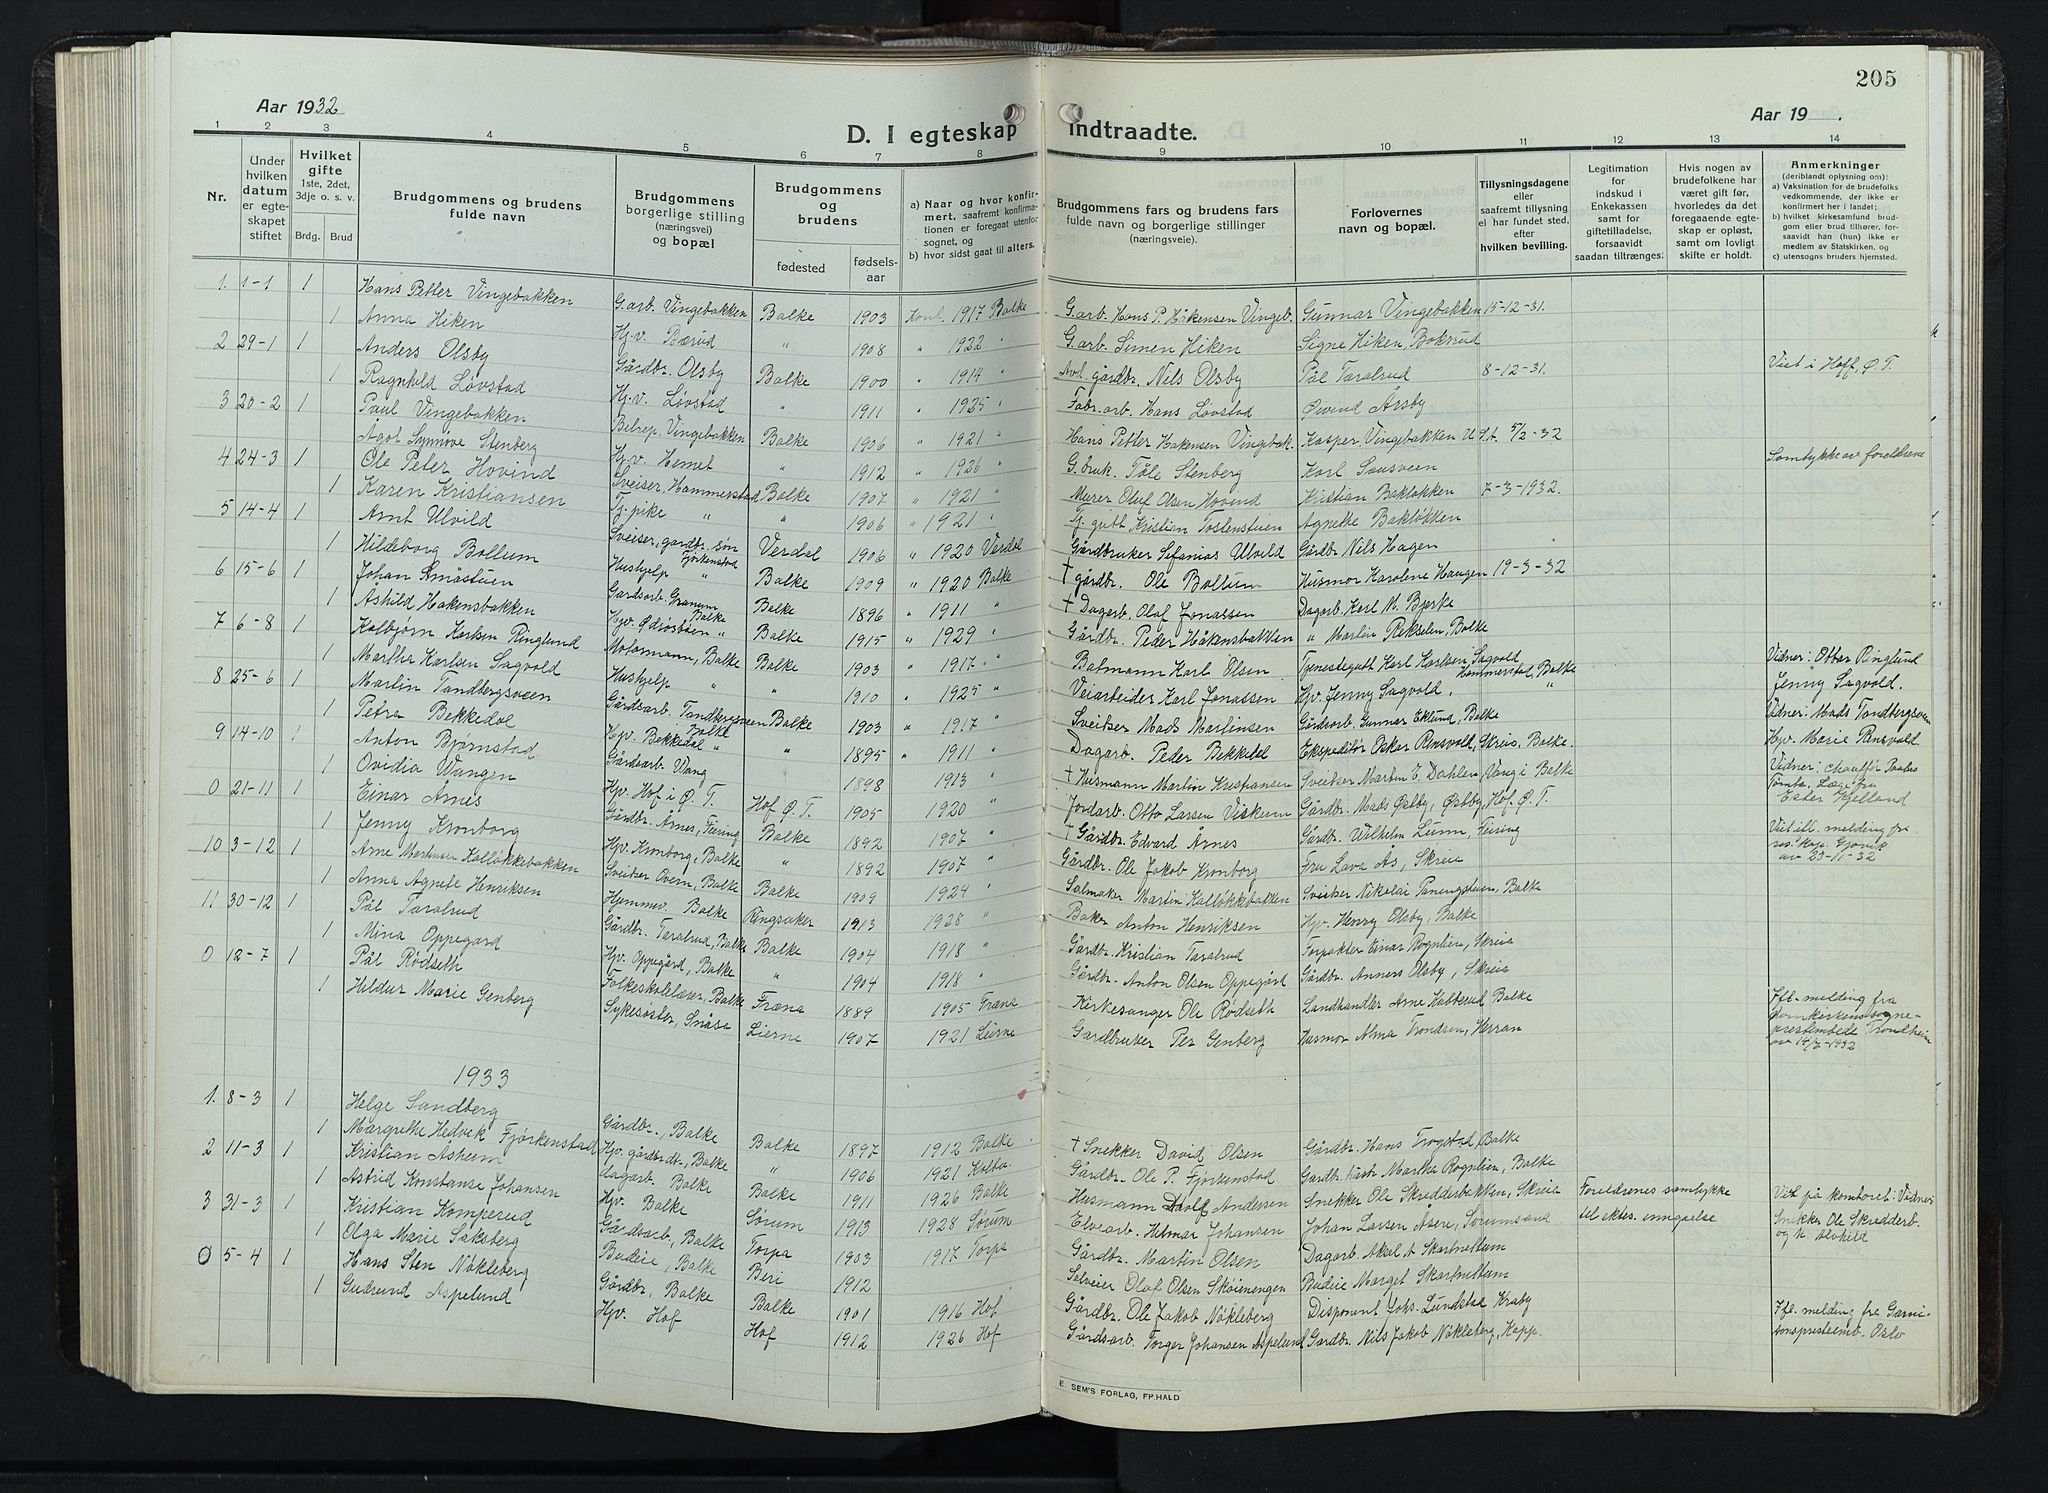 205
Aar 1932
Aar 19 .
D. I egteskap indtraadte.
1 2 3 4 5 6 7 8 9 10 11 12 13 14
Nr.
Under hvilken datum er egteskapet stiftet
Hvilket gifte 1ste, 2det, 3dje o. s. v.
Brdg. Brud
Brudgommens og brudens fulde navn
Brudgommens borgerlige stilling (næringsvei) og bopæl
Brudgommens og brudens
fødested
fødselsaar
a) Naar og hvor konfirmert, saafremt konfirmationen er foregaat utenfor sognet, og
b) hvor sidst gaat til alters.
Brudgommens fars og brudens fars fulde navn og borgerlige stillinger (næringsveie).
Forlovernes navn og bopæl.
Tillysningsdagene eller saafremt tillysning ei har fundet sted, efter hvilken bevilling.
Legitimation for indskud i Enkekassen samt for giftetilladelse, forsaavidt saadan tiltrænges.
Hvis nogen av brudefolkene har været gift før, hvorledes da det foregaaende egteskap er opløst, samt om lovligt skifte er holdt.
Anmerkninger (deriblandt oplysning om):
a) Vaksination for de brudefolks vedkommende, der ikke er konfirmert her i landet;
b) hvilket kirkesamfund brudgom eller brud tilhører, forsaavidt han (hun) ikke er medlem av Statskirken, og
c) utensogns bruders hjemsted.
1. 1-1 1 Hans Petter Vingebakken G.arb. Vingebakken Balke 1903 Konf. 1917 Balke G.arb. Hans P. Håkensen Vingeb. Gunnar Vingebakken 15-12-31.
1 Anna Hiken Hj.v. Bærud " 1908 " 1922 " G.arb. Simen Hiken Signe Hiken, Boksrud
2 29-1 1 Anders Olsby Gårdbr. Olsby Balke 1900 " 1914 " Avd. gårdbr. Nils Olsby Pål Taralrud 8-12-31. Viet i Hoff, Ø. T.
1 Ragnhild Løvstad Hj.v. Løvstad " 1911 " 1925 " Fabr.arb. Hans Løvstad Øivind Årsby
3 20-2 1 Paul Vingebakken Vingebakken Balke 1906 " 1921 " Hans Petter Hakensen Vingebak. Kasper Vingebakken 5/2-32
Agot Synnøve Stenberg Hj.v. Hemet " 1912 " 1926 " G.bruk. Tåle Stenberg Karl Sausveen Samtykke av foreldrene
4 24-3 1 Ole Peter Hovind Sveiser, Hammerstad Balke 1907 " 1921 " Murer Oluf Olsen Hovind Kristian Bakløkken 7-3-1932.
1 Karen Kristiansen Tj.pike " " 1906 " 1921 " Tj.gutt Kristian Tostenstuen Agnethe Bakløkken
5 14-4 1 Arnt Ulvild Sveiser, gårdbr. søn Verdal 1906 " 1920 Verdal Gårdbruker Sefanias Ulvild Gårdbr. Nils Hagen
1 Hildeborg Bollum Hushjelp Fjørkenstad " Balke 1909 " 1920 Balke † gårdbr. Ole Bollum Husmor Karolene Haugen 19-3-32
6 15-6 1 Johan Småstuen Gardsarb. Granum Balke Balke 1896 " 1911 " † Dagarb. Olaf Jonassen Dagarb. Karl M. Bjerke
1 Ashild Hakensbakken Hjv. " Balke 1915 " 1929 " Gårdbr. Peder Håkensbakken " Martin Rekselen, Balke
7 6-8 1 Kolbjørn Karlsen Ringlund Motormann, Balke Balke 1903 " 1917 " Batmann Karl Olsen Tjenestegutt Karl Karlsen Sagvold Hammerstad, Balke Vidner: Ottar Ringlund
1 Martha Karlsen Sagvold Hushjelp " " 1910 " 1925 " Veiarbeider Karl Jonassen Hjv. Jenny Sagvold, " Jenny Sagvold.
8 25-6 1 Martin Tandbergsveen Gårdsarb. Tandbergsveen Balke Balke 1903 " 1917 " Sveitser Mads Martinsen Gårdsarb. Gunnar Eklund, Balke Vidner: Mads Tandbergsveen
1 Petra Bekkedal Hjv. Bekkedal " " 1895 " 1911 " Dagarb. Peder Bekkedal Ekspeditør Oskar Rensvold, Skreia, Balke. Hjv. Marie Rensvold
9 14-10 1 Anton Bjørnstad Gårdsarb. Vang 1898 1913 " † Husmann Martin Kristiansen Sveitser Martin E. Dahlen, Vang i Balke
1 Ovidia Wangen Hjv. Hof i Ø. T. Hof Ø. T. 1905 1920 " Jordarb. Otto Larsen Viskum Gårdbr. Mads Østby, Østby, Hof. Ø. T. Ester Kjelland
0 21-11 1 Einar Årnes Gårdbr. Årnes, Feiring Balke 1892 1907 " † Gårdbr. Edvard Årnes Gårdbr. Wilhelm Lunn, Feiring Viet ifl. melding fra res. kap. Gjøvik av 23-11-32
1 Jenny Kronborg Hjv. Kronborg, Balke " 1892 1907 " Gårdbr. Ole Jakob Kronborg Fru Lava Ås, Skreia
10 3-12 1 Arne Martinsen Kalløkkebakken Sveitser Overn, Balke Balke 1909 1924 " Salmaker Martin Kalløkkebakken Sveitser Nikolai Paningstuen, Balke
1 Anna Agnete Henriksen Hjemmev. Balke Ringsaker 1913 1928 " Baker Anton Henriksen Hjv. Henry Olsby, Balke
11 30-12 1 Pål Taralrud Gårdbr. Taralrud, Balke Balke 1904 1918 " Gårdbr. Kristian Taralrud Forpakter Einar Rognlien, Skreia
1 Mina Oppegard Hjv. Oppegård, Balke " 1904 1918 " Gårdbr. Anton Olsen Oppegård Gårdbr. Anners Olsby, Skreia
0 12-7 1 Pål Rødseth Folkeskolelærer, Balke Fræna 1889 1905 Fræna Kirkesanger Ole Rødseth Landhandler Arne Hubberud Balke Ifl. melding fra domkirkens sogneprestembede Trondheim av 14/7-1932
1 Hildur Marie Genberg Sykesøster, Snåsa Lierne 1907 1921 Lierne Gardbruker Per Genberg Husmor Alma Trondsen, Herran
1933
1. 8-3 1 Helge Sandberg Gårdbr., Balke Balke 1897 1912 Balke † Snekker David Olsen Gårdbr. Hans Trogstad, Balke
1 Margrethe Hedvek Fjørkenstad Hjv. gårdbrdt., Balke " 1906 1921 Kolbu Gårdbr. Ole P. Fjørkenstad Gardbr. hustr. Martha Rognlien, Balke
2 11-3 1 Kristian Åsheim dagarb. Balke Balke 1911 1926 Balke Husmann Adolf Andersen Snekker Ole Skredderbakken, Skreia Foreldrenes samtykke til ektes. inngåelse Viet på kontoret: Vidner: Snekker Ole Skredderb. og h. Alvhild
1 Astrid Konstanse Johansen Hjv. Balke Sørum 1913 1928 Sørum Elvearb. Helmar Johansen Johan Larsen Åsen, Sørumsand
3 31-3 1 Kristian Komperud Gårdsarb., Balke Torpa 1903 1917 Torpa Gårdbr. Martin Olsen Dagarb. Aksel Skartnettum
1 Olga Marie Saksberg Budeie, Balke Biri 1912 Salveier Olaf Olsen Skøienengen Budeie Marget Skartnettum
0 5-4 1 Hans Sten Nøkleberg Gårdbr., Balke Balke 1901 1916 Hof Gårdbr. Ole Jakob Nøkleberg Disponent Johs. Lundstad Kraby Ifl. melding fra Garnisonsprestemb. Oslo
1 Gudrund Aspelund Hjv. Hof Hof 1912 1926 Hof Gårdsarb. Torger Johansen Aspelund Gårdbr. Nils Jakob Nøkleberg, Kapp.
E. SEM'S FORLAG, FR.HALD